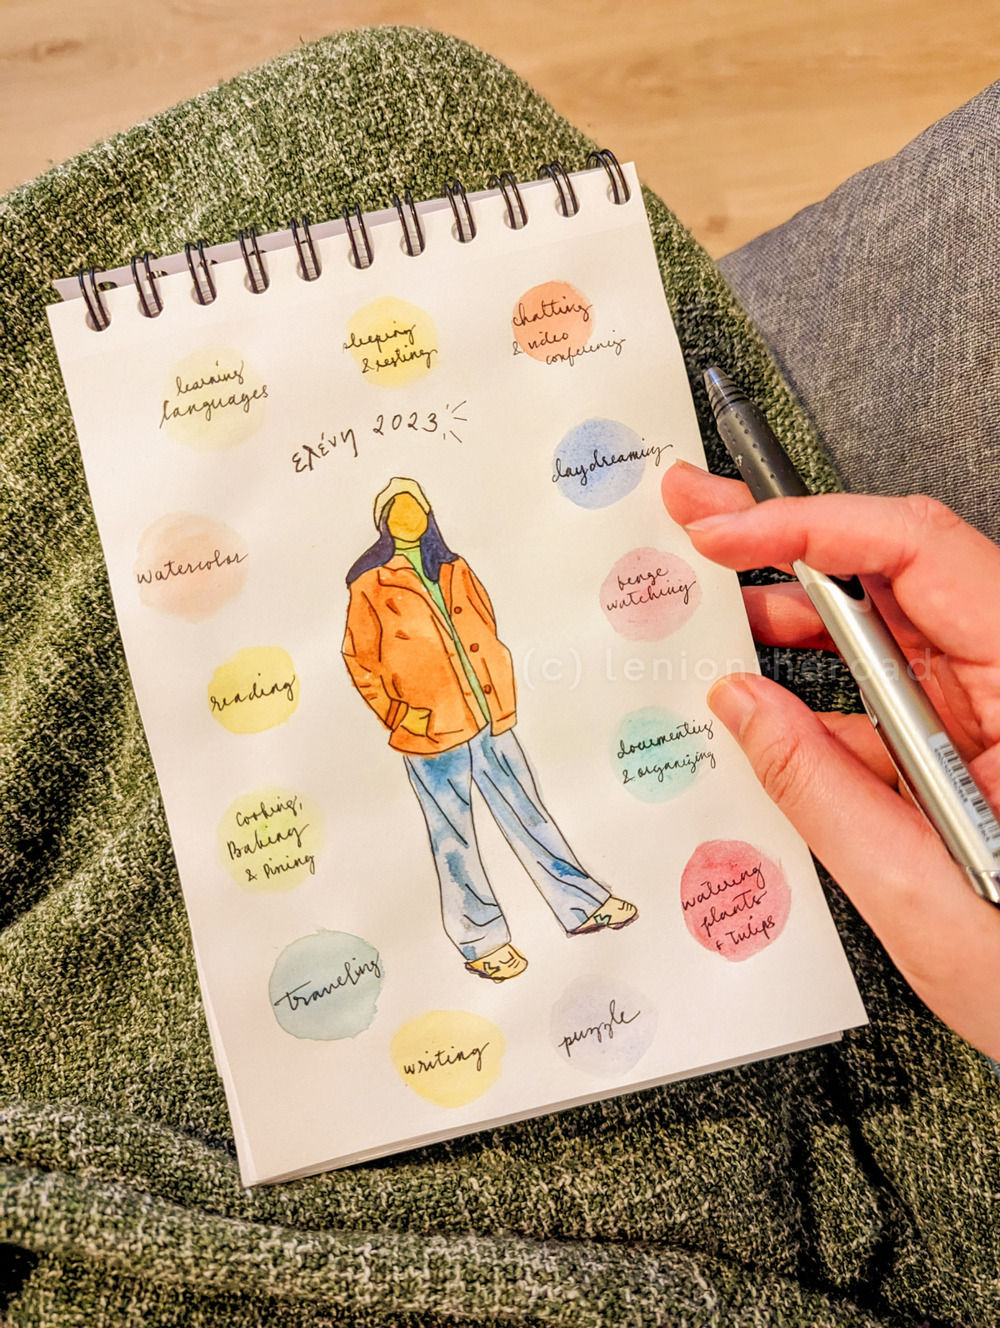 sleeping
& resting
chatting
& video
conferencing
learning
languages
ελένη 2023
daydreaming
watercolor
benge
watching
(c) leniontheroad
reading
documenting
& organizing
cooking,
Baking
& Pining
watering
plants
+ tulips
traveling
writing
puzzle